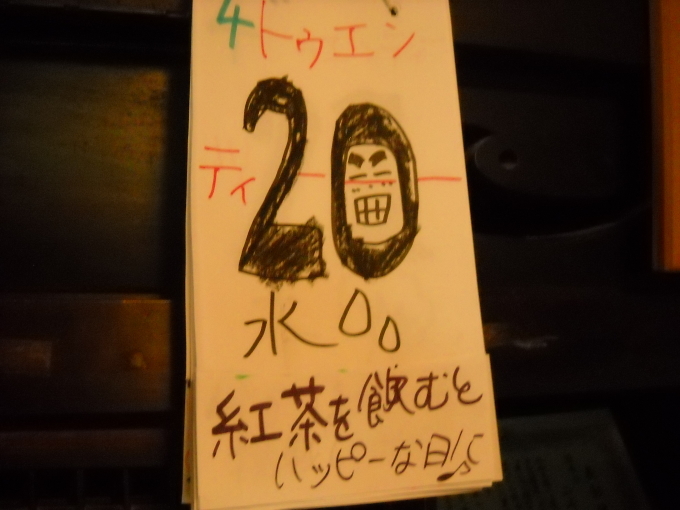 4 トゥエン
ティー
20
水
紅茶を飲むと
ハッピーな日!